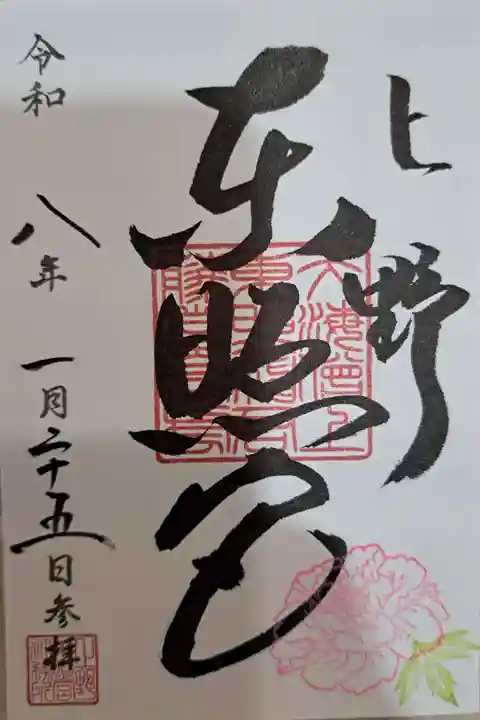 上野
東照宮
令和八年一月二十五日参拝